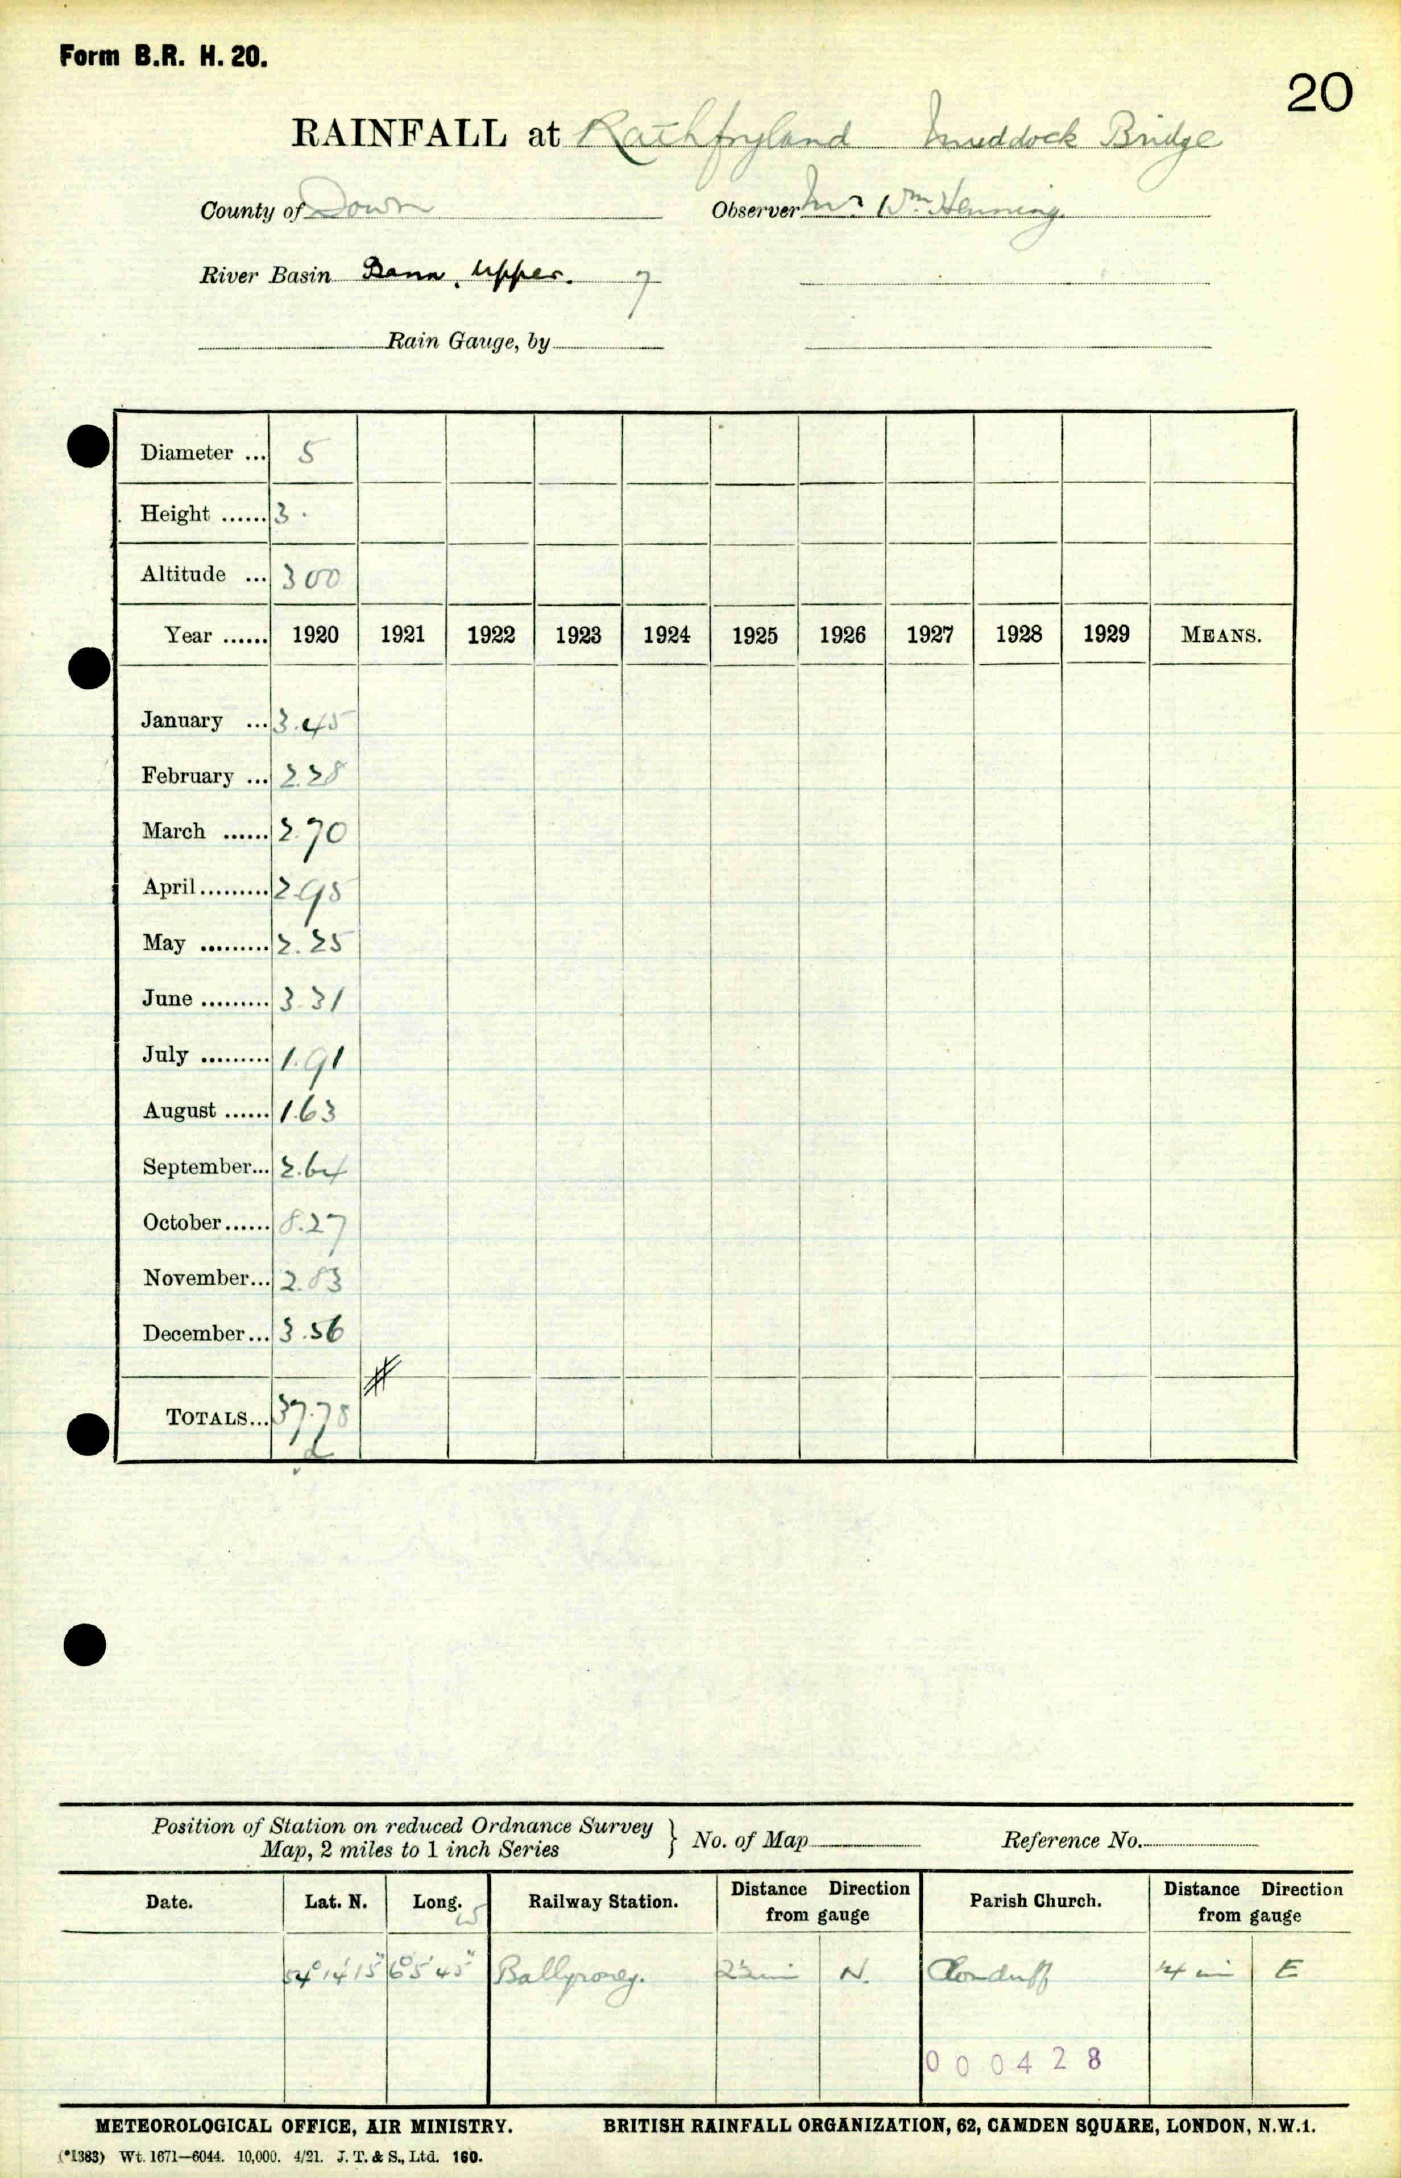 Form B.R. H. 20.
20
RAINFALL at Rathfryland Muddock Bridge
County of Down Observer Mr. Wm. Henning
River Basin Bann, Upper. 7
Rain Gauge, by
Diameter ... 5
Height ...... 3.
Altitude ... 300
Year ...... 1920 1921 1922 1923 1924 1925 1926 1927 1928 1929 MEANS.
January ... 3.45
February ... 2.28
March ...... 2.70
April ......... 2.95
May ......... 2.25
June ......... 3.31
July ......... 1.91
August ...... 1.63
September... 2.64
October...... 8.27
November... 2.83
December... 3.56
TOTALS... 37.78
Position of Station on reduced Ordnance Survey
Map, 2 miles to 1 inch Series } No. of Map Reference No.
Date. Lat. N. Long. W Railway Station. Distance Direction from gauge Parish Church. Distance Direction from gauge
54° 14' 15" 6° 5' 45" Ballyroney. N. Clonduff 4 mi E
000428
METEOROLOGICAL OFFICE, AIR MINISTRY. BRITISH RAINFALL ORGANIZATION, 62, CAMDEN SQUARE, LONDON, N.W.1.
(*1383) Wt. 1671—6044. 10,000. 4/21. J. T. & S., Ltd. 160.